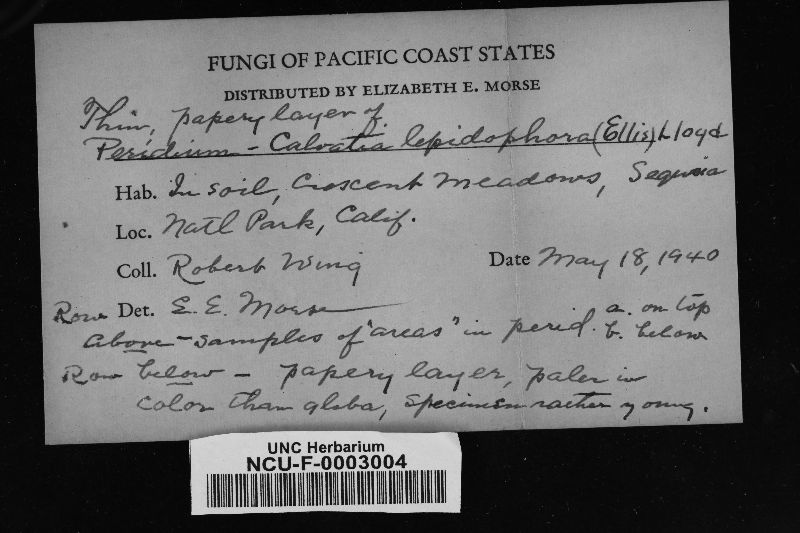 FUNGI OF PACIFIC COAST STATES
DISTRIBUTED BY ELIZABETH E. MORSE
Thin, papery layer of
Peridium - Calvatia lepidophora (Ellis) Lloyd
Hab. In soil, Crescent Meadows, Sequoia
Loc. Natl Park, Calif.
Coll. Robert Wing Date May 18, 1940
Det. E. E. Morse
Row above - samples of "areas" in perid. a. on top
b. below
Row below - papery layer, paler in
color than gleba, specimen rather young.
UNC Herbarium
NCU-F-0003004